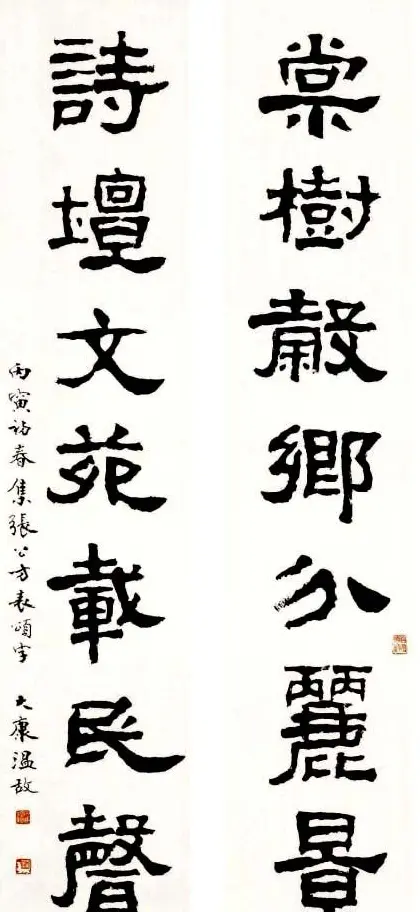 棠樹穀鄉分麗景
詩壇文苑載民聲
丙寅初春集張公方表頌字 大康溫故